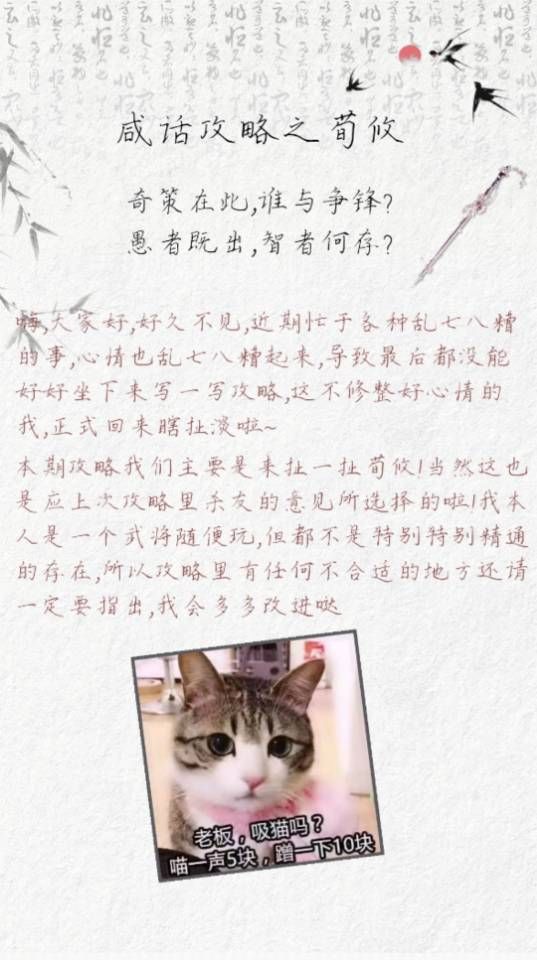 咸话攻略之荀攸
奇策在此,谁与争锋?
愚者既出,智者何存?
嗨,大家好,好久不见,近期忙于各种乱七八糟
的事,心情也乱七八糟起来,导致最后都没能
好好坐下来写一写攻略,这不修整好心情的
我,正式回来瞎扯淡啦~
本期攻略我们主要是来扯一扯荀攸!当然这也
是应上次攻略里杀友的意见所选择的啦!我本
人是一个武将随便玩,但都不是特别特别精通
的存在,所以攻略里有任何不合适的地方还请
一定要指出,我会多多改进哒
老板，吸猫吗？
喵一声5块，蹭一下10块